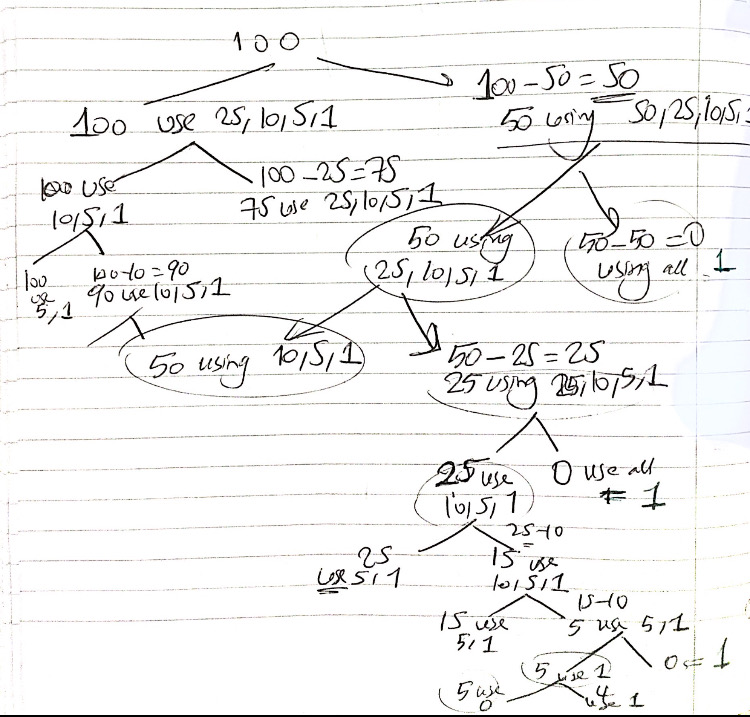 100
100 - 50 = 50
50 using 50, 25, 10, 5, 1
100 use 25, 10, 5, 1
100 use
10, 5, 1
100 - 25 = 75
75 use 25, 10, 5, 1
50 using
25, 10, 5, 1
50 - 50 = 0
using all 1
100
use
5, 1
100-10 = 90
90 use 10, 5, 1
50 using 10, 5, 1
50 - 25 = 25
25 using 25, 10, 5, 1
25 use
10, 5, 1
0 use all
= 1
25
use 5, 1
25-10
=
15 use
10, 5, 1
15 use
5, 1
15-10
5 use 5, 1
5 use 1
0 = 1
5 use
0
4
use 1